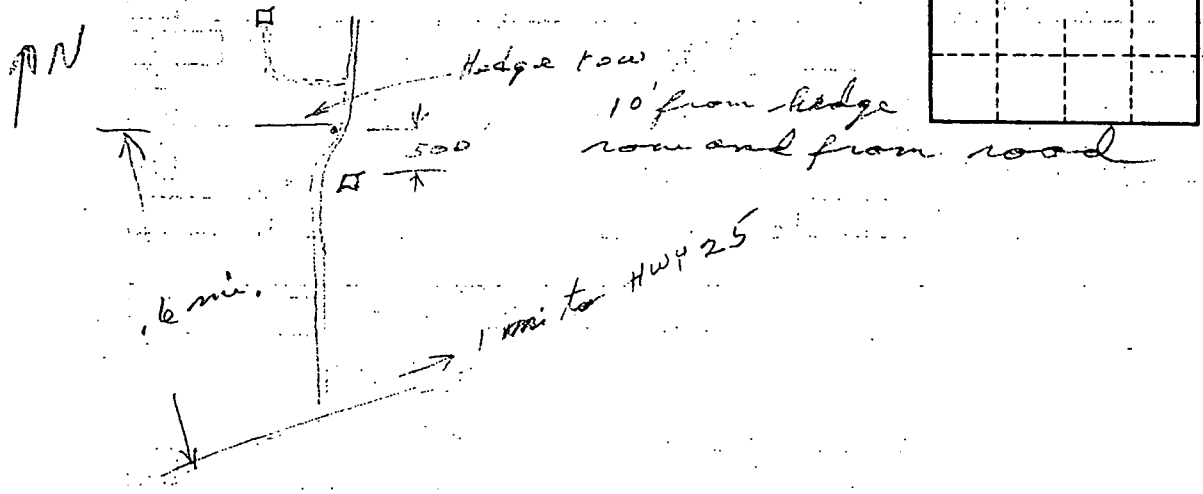 N
Hedge row
10' from hedge
row and from road
500
.6 mi.
1 mi to HWY 25